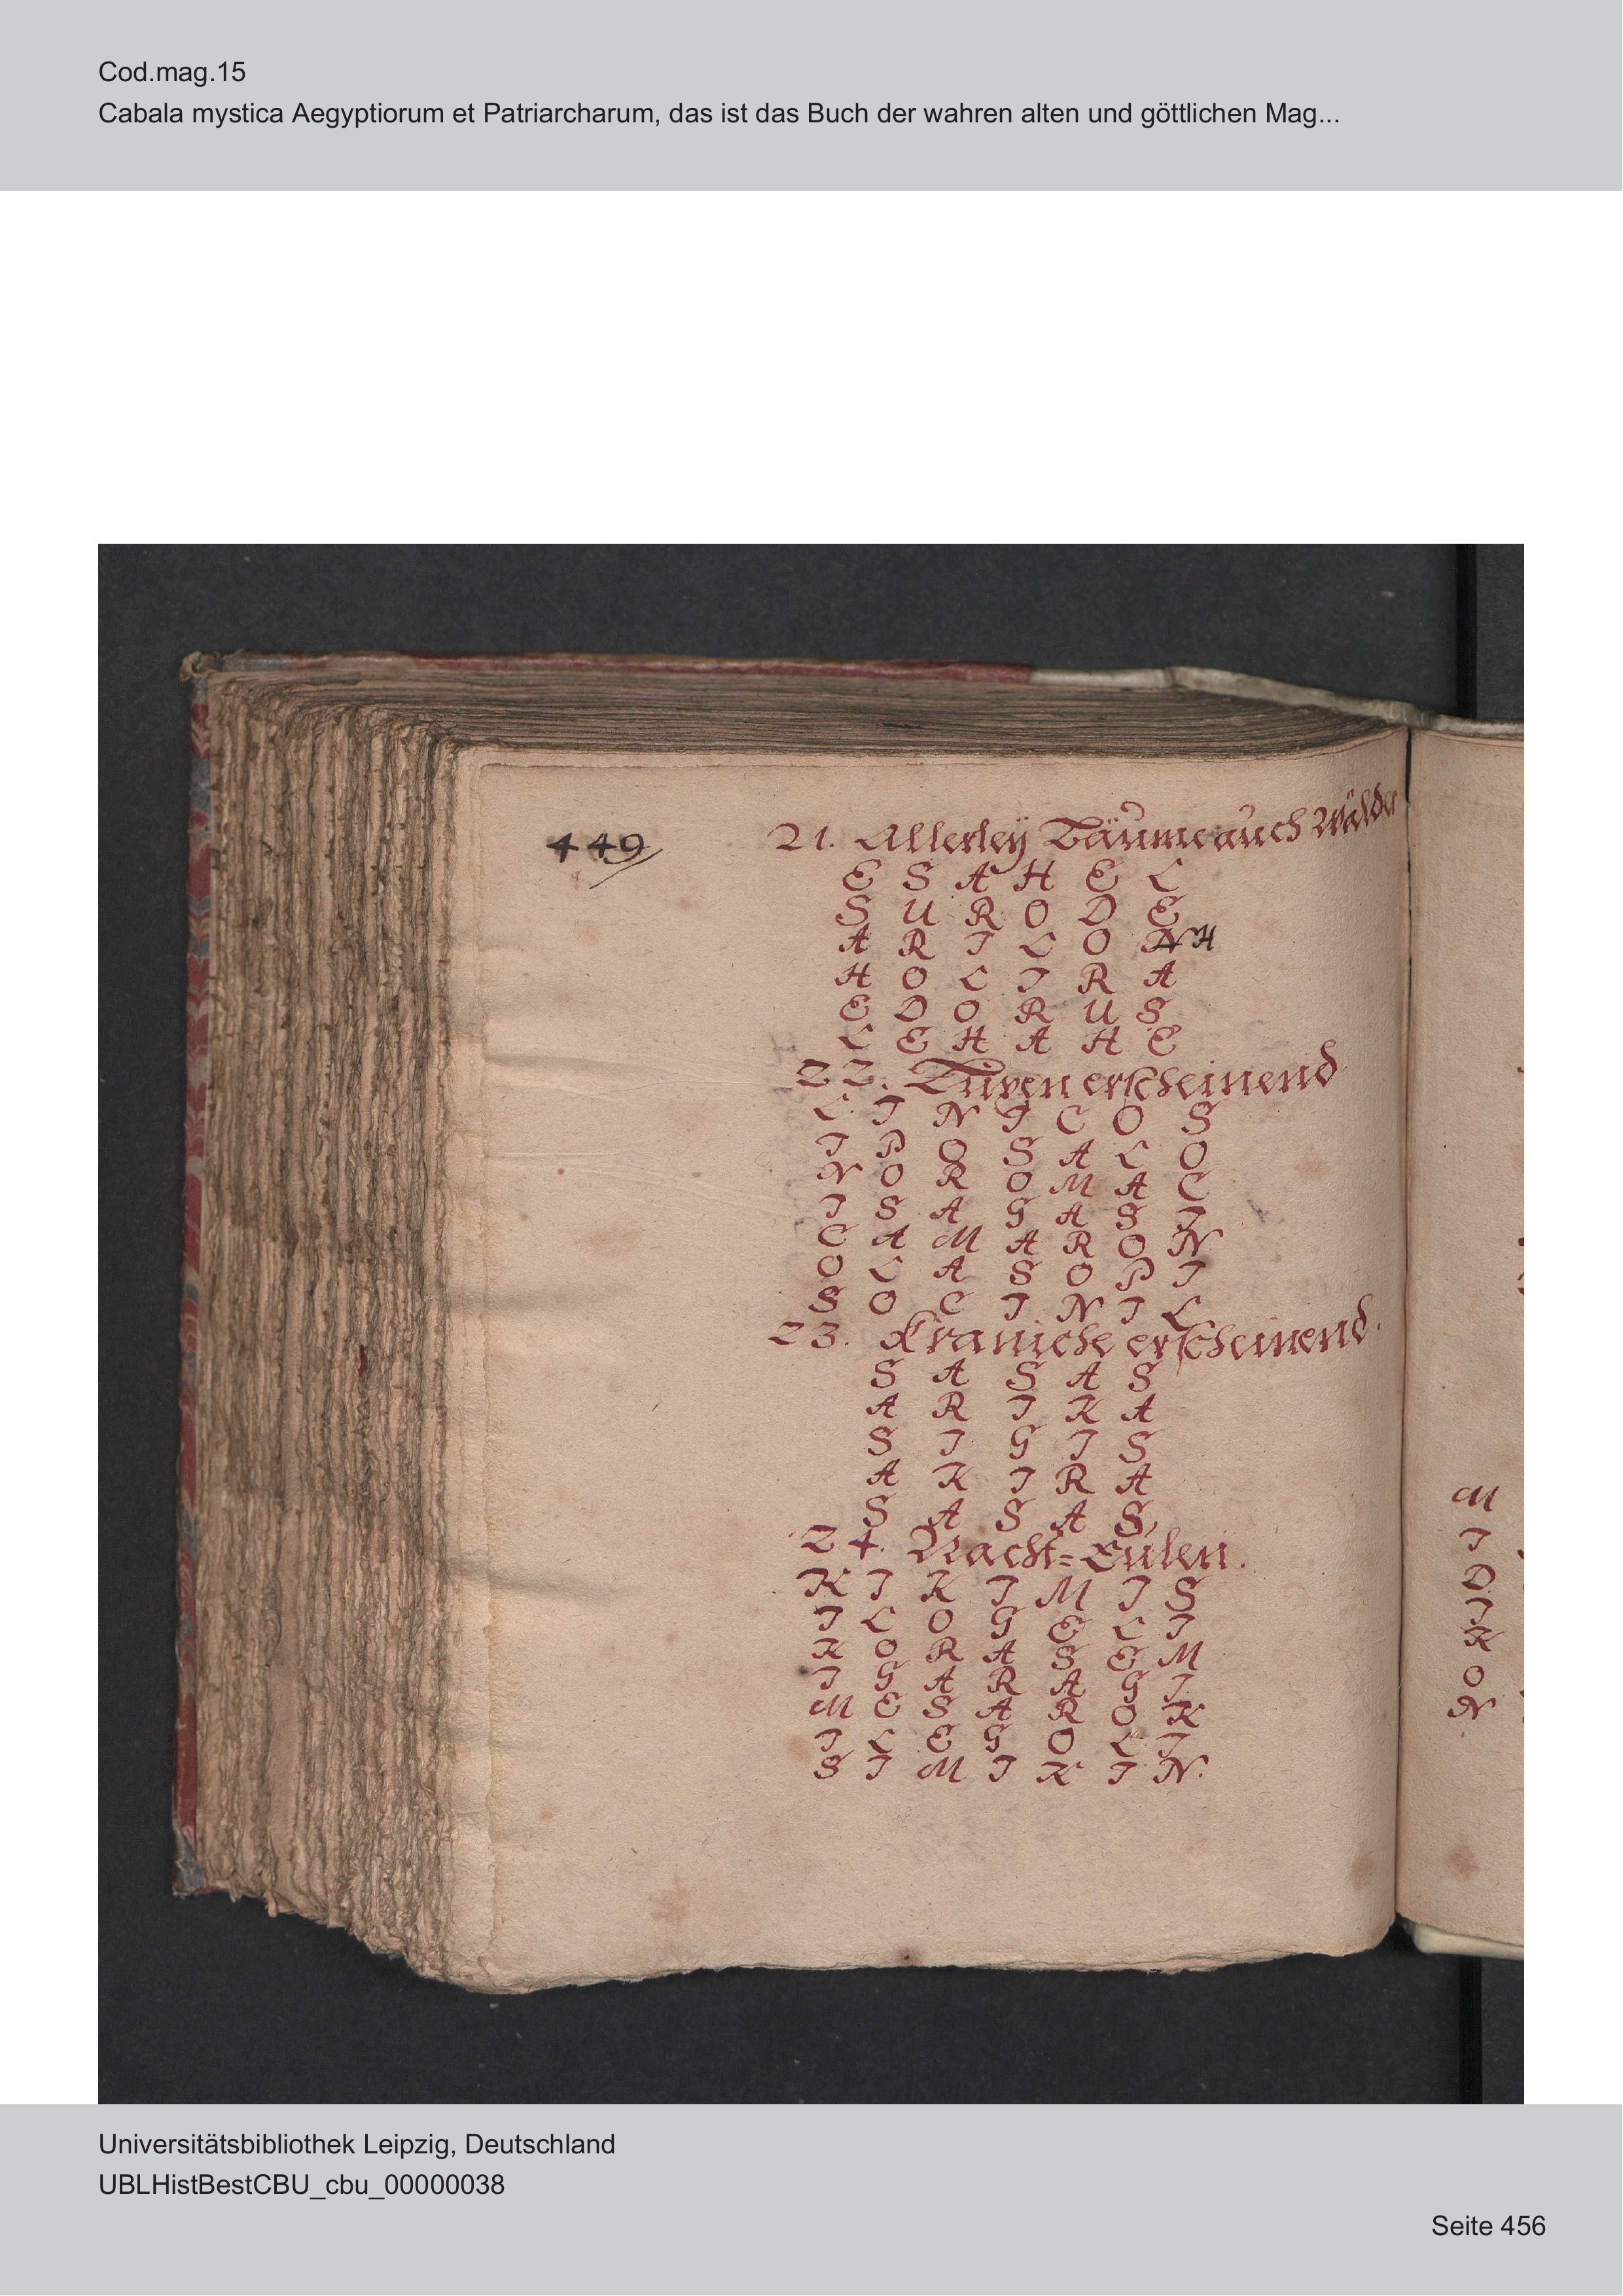 Cod.mag.15
Cabala mystica Aegyptiorum et Patriarcharum, das ist das Buch der wahren alten und göttlichen Mag...
449
21. Allerleÿ Bäume auch Wälder
E S A H E L
S U R O D E
A R I L O N H
H O L I R A
E D O R U S
L E H A H E
22. erscheinend
L I N I C O S
I P O S A L O
N O R O M A C
I S A G A S I
C A M A R O N
O L A S O P I
S O C I N I L
23. Kraniche erscheinend.
S A S A S
A R I K A
S I G I S
A K I R A
S A S A S
24. Nacht=Eülen.
K I K I M I S
I L O G E L I
K O R A S E M
I G A R A G I
M E S A R O K
I L E G O L I
S I M I K I N.
M
I
D
I
K
O
N
Universitätsbibliothek Leipzig, Deutschland
UBLHistBestCBU_cbu_00000038
Seite 456